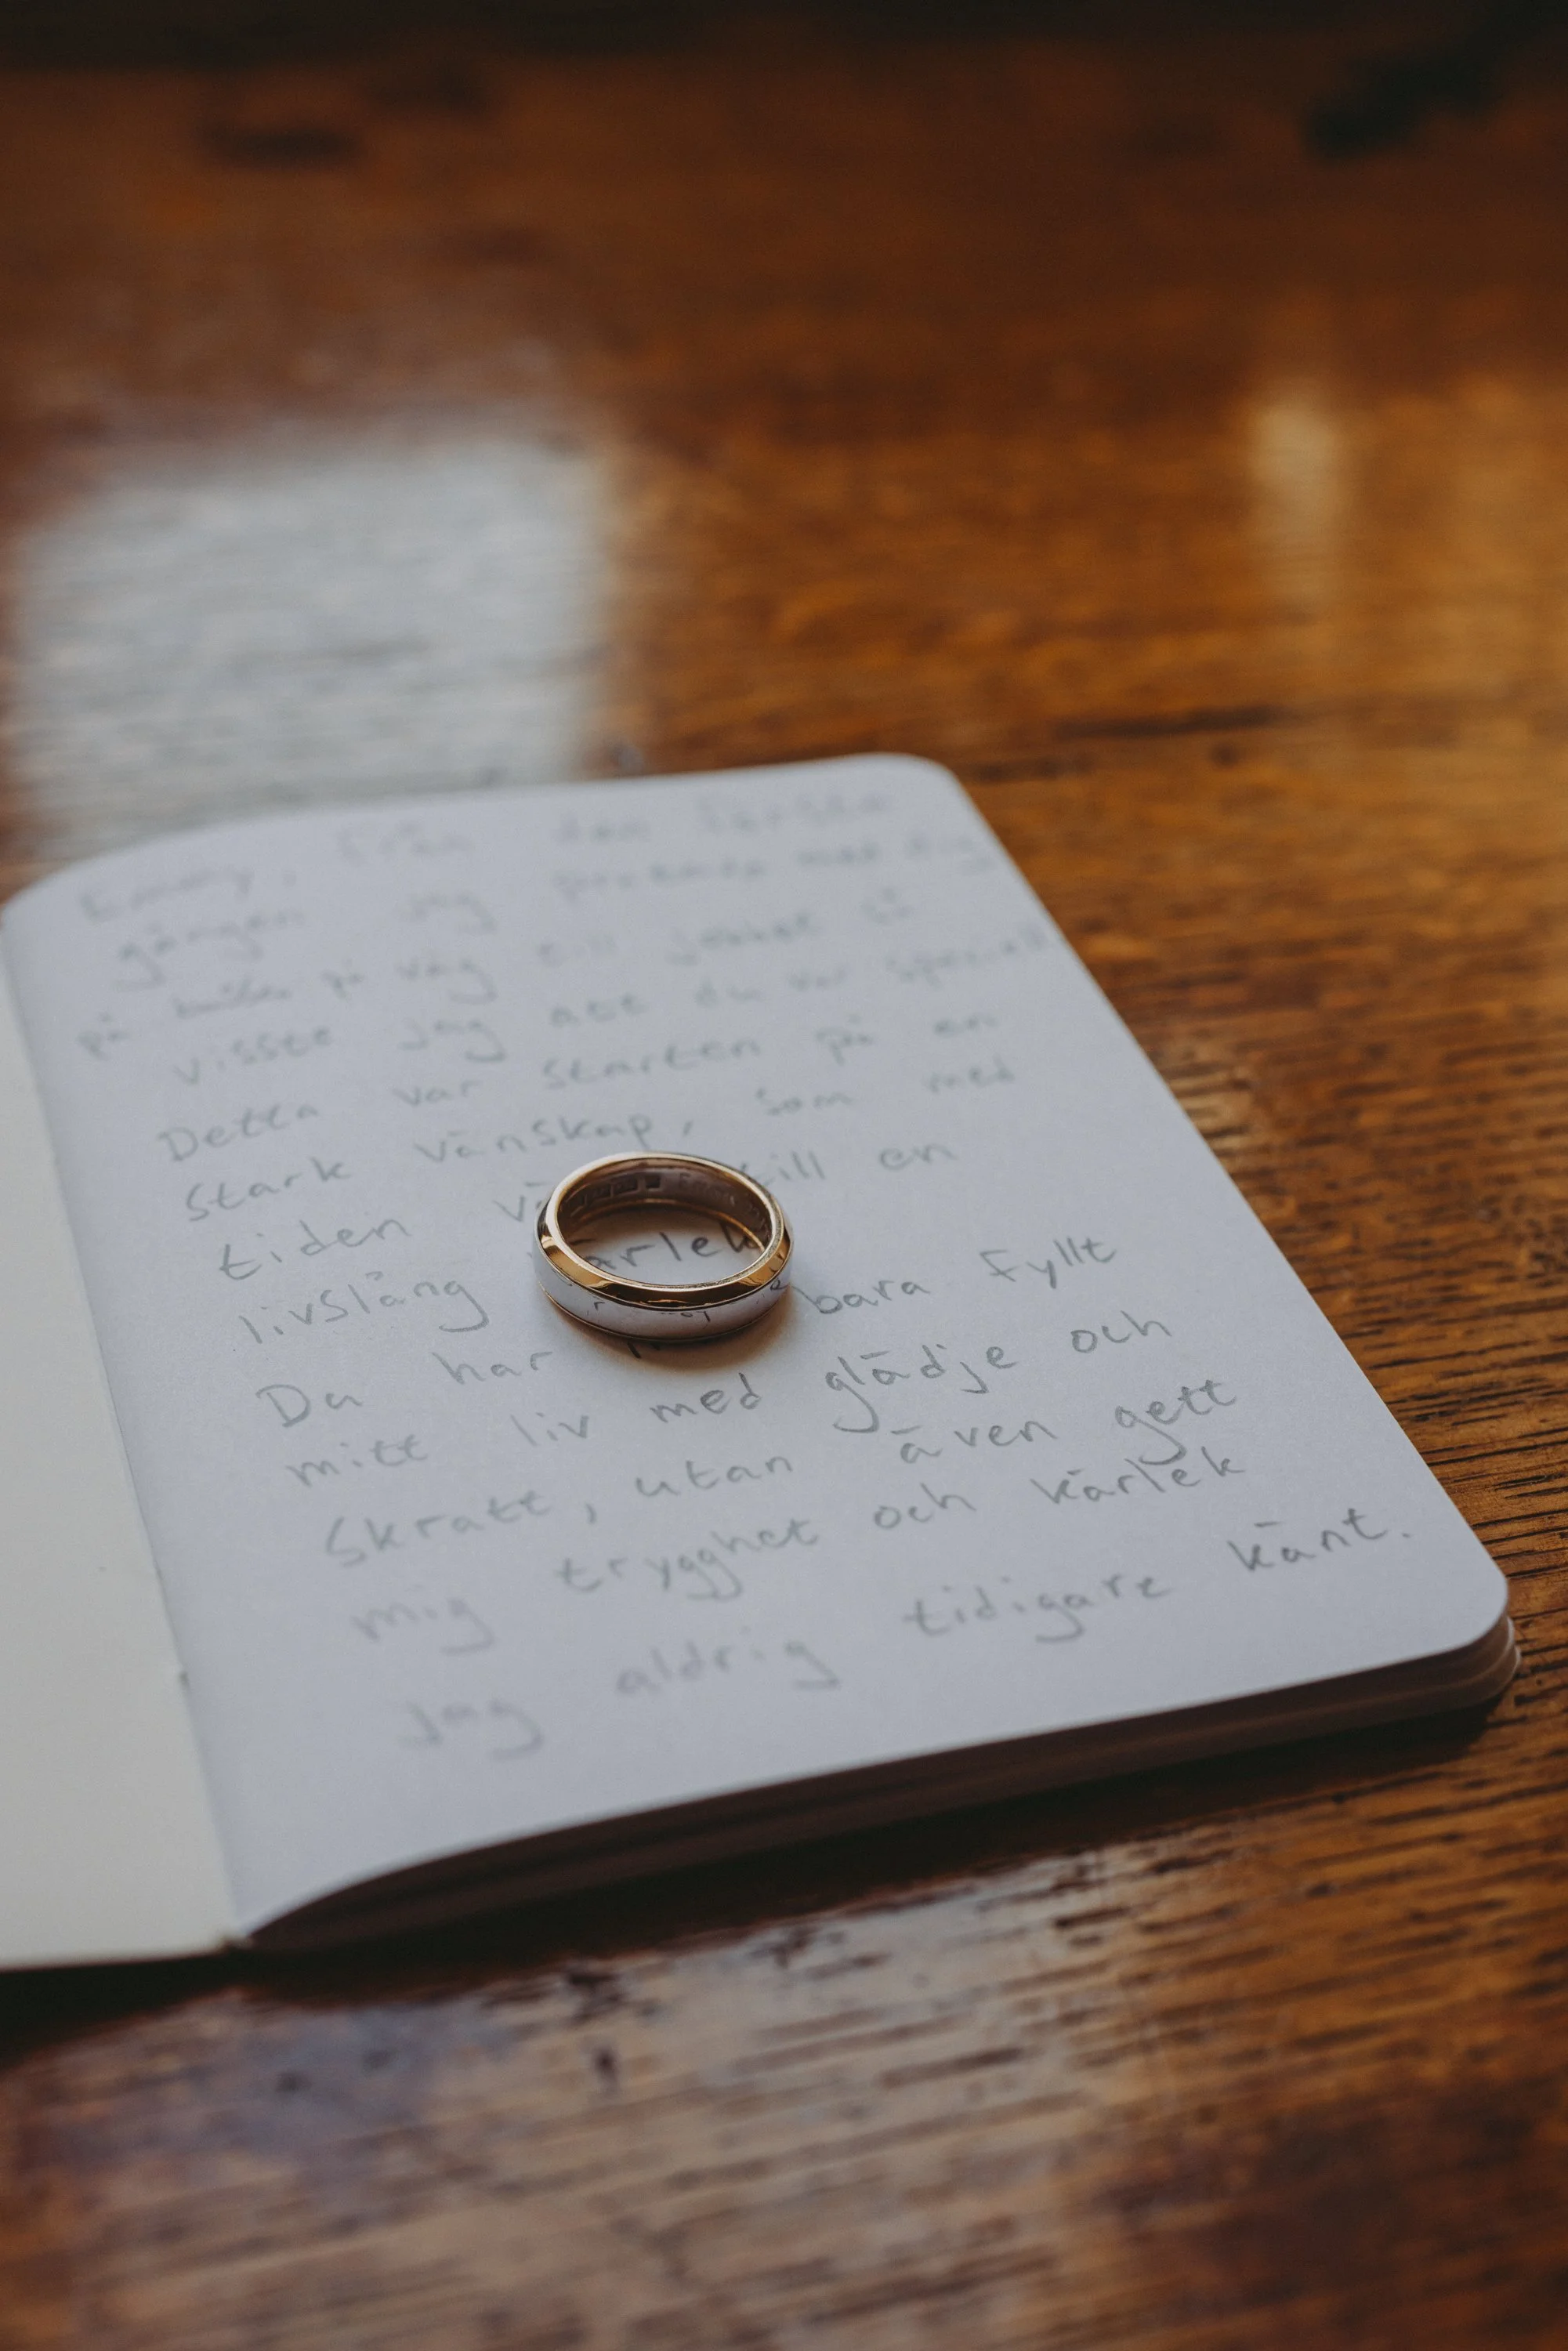 Emmy, från den första
gången jag pratade med dig
på bussen på väg till jobbet så
visste jag att du var speciell
Detta var starten på en
stark vänskap, som med
tiden till en
livslång kärlek
Du har bara fyllt
mitt liv med glädje och
skratt, utan även gett
mig trygghet och kärlek
jag aldrig tidigare känt.